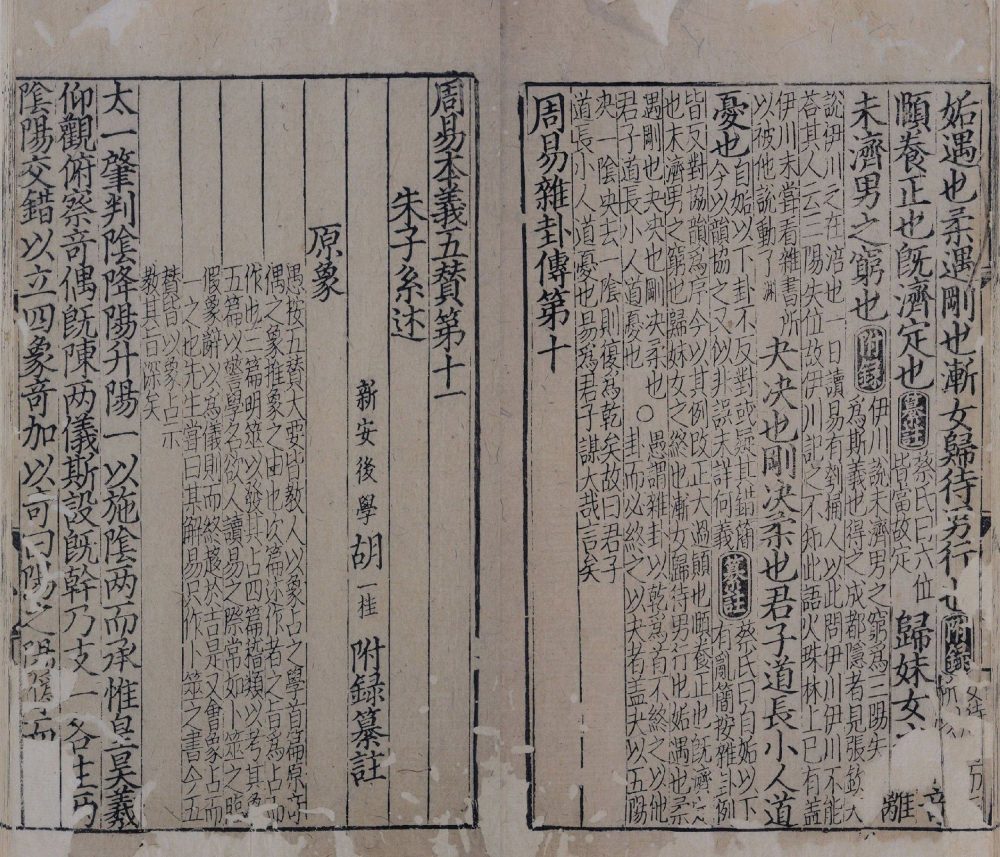 姤遇也柔遇剛也漸女歸待男行也 附録
頤養正也旣濟定也 纂註 蔡氏曰六位
皆當故定 歸妹女
未濟男之窮也 附録 伊川說未濟男之窮爲三陽失
爲斯義也得之成都隱者見張欽夫
說伊川之在涪也一日讀易有箍桶人以此問伊川伊川不能
荅其人云三陽失位故伊川記之不知此語火珠林上已有蓋
伊川未嘗看雜書所
以被他說動了淵
夬决也剛决柔也君子道長小人道
憂也 自姤以下卦不反對或疑其錯簡
今以韻協之又似非誤未詳何義
纂註 蔡氏曰自姤以下
有亂簡按雜卦例
皆反對協韻爲序今以其例改正大過顚也頤養正也旣濟定
也未濟男之窮也歸妹女之終也漸女歸待男行也姤遇也柔
遇剛也夬决也剛决柔也
君子道長小人道憂也
○愚謂雜卦以乾爲首不終之以他
卦而必終之以夬者蓋夬以五陽
决一陰夬去一陰則復爲乾矣故曰君子
道長小人道憂也易爲君子謀大哉言矣
周易雜卦傳第十
離
周易本義五賛第十一
朱子系述
新安後學胡一桂附録纂註
原象
愚按五賛大要皆教人以象占之學首篇原奇
偶之象推象之由也次篇述作者之旨爲占而
作也三篇明筮以發其占四篇稽類以考其象
五篇以警學名欲人讀易之際常如卜筮之臨
假象辭以爲儀則而終趍於吉是又會象占而
一之也先生嘗曰某解易只作卜筮之書今五
賛皆以象占示
教其旨深矣
太一肇判陰降陽升陽一以施陰两而承惟皇昊羲
仰觀俯察奇偶旣陳两儀斯設旣幹乃支一各生两
陰陽交錯以立四象奇加以奇曰陽之陽